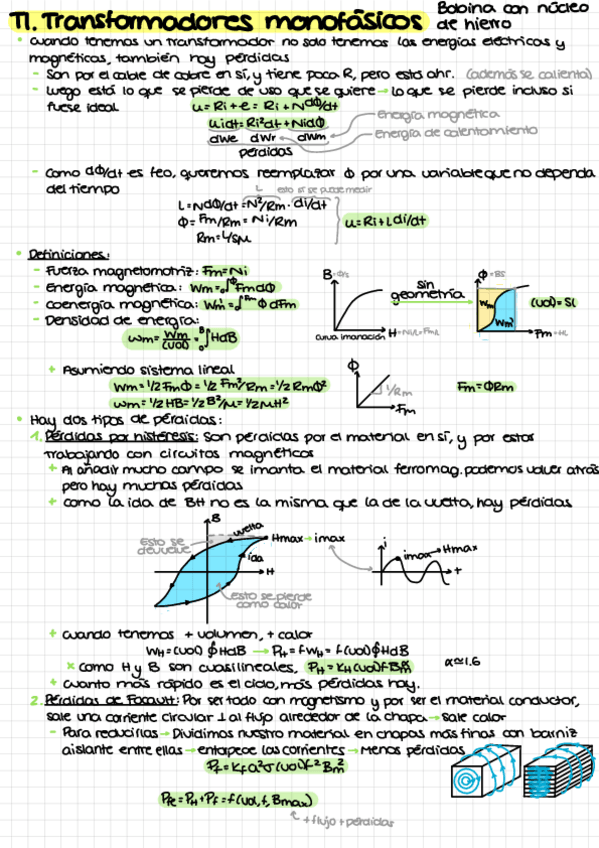 T1. Transformadores monofásicos Bobina con núcleo de hierro
• Cuando tenemos un transformador no solo tenemos las energías eléctricas y
magnéticas, también hay pérdidas
- Son por el cable de cobre en sí, ya tiene poca R, pero está ahí. (además se calienta)
- Luego está lo que se pierde de uso que se quiere → lo que se pierde incluso si
fuese ideal
u = Ri + e = Ri + N dΦ/dt
uidt = Ri²dt + NidΦ
dWe dWr dWm
pérdidas
Energía magnética
Energía de calentamiento
- Como dΦ/dt es feo, queremos reemplazar Φ por una variable que no dependa
del tiempo
L esto sí se puede medir
L = NdΦ/dt = N²/Rm · di/dt
Φ = Fm/Rm = Ni/Rm
Rm = L/Sμ
u = Ri + L di/dt
• Definiciones:
- Fuerza magnetomotriz: Fm = Ni
- Energía magnética: Wm = ∫₀^Φ FmdΦ
- Coenergía magnética: Wm' = ∫₀^Fm ΦdFm
- Densidad de energía:
wm = Wm/(vol) = ∫₀^B HdB
B = Φ/s
curva imanación
H = Ni/L = Fm/L
sin geometría
Φ = BS
Wm
Wm'
Fm = HL
(vol) = SL
+ Asumiendo sistema lineal
Wm = 1/2 FmΦ = 1/2 Fm²/Rm = 1/2 RmΦ²
wm = 1/2 HB = 1/2 B²/μ = 1/2 μH²
Φ
1/Rm
Fm
Fm = ΦRm
• Hay dos tipos de pérdidas:
1. Pérdidas por histéresis: Son pérdidas por el material en sí, y por estar
trabajando con circuitos magnéticos
+ Al añadir mucho campo se imanta el material ferromag. podemos volver atrás
pero hay muchas pérdidas
+ Como la ida de BH no es la misma que la de la vuelta, hay pérdidas
B
vuelta
Esto se devuelve
Hmax → imax
ida
H
esto se pierde como calor
i
imax → Hmax
t
+ Cuando tenemos + volumen, + calor
WH = (vol) ∮HdB → PH = f WH = f (vol) ∮HdB
× Como H y B son cuasilineales, PH = KH (vol) f Bmᵅ
α ≃ 1.6
+ Cuanto más rápido es el ciclo, más pérdidas hay.
2. Pérdidas de Foucault: Por ser todo con magnetismo y por ser el material conductor,
sale una corriente circular ⊥ al flujo alrededor de la chapa → sale calor
- Para reducirlas → Dividimos nuestro material en chapas más finas con barniz
aislante entre ellas → entorpece las corrientes → Menos pérdidas
Pf = Kf a² σ (vol) f² Bm²
PFe = PH + Pf = f (vol, f, Bmax)
+ flujo + pérdidas